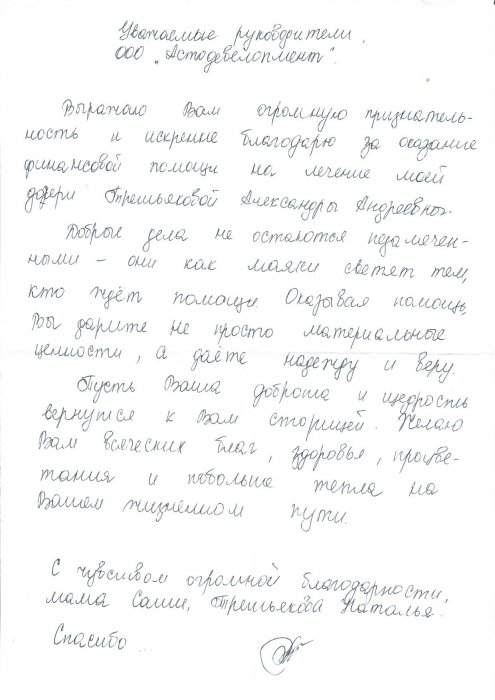 Уважаемые руководители
ООО „Астодевелопмент".
Выражаю Вам огромную признатель-
ность и искренне благодарю за оказание
финансовой помощи на лечение моей
дочери Третьяковой Александры Андреевны.
Добрые дела не остаются незамечен-
ными – они как маяки светят тем,
кто ждёт помощи. Оказывая помощь,
Вы дарите не просто материальные
ценности, а даёте надежду и веру.
Пусть Ваша доброта и щедрость
вернутся к Вам сторицей. Желаю
Вам всяческих благ, здоровья, процве-
тания и побольше тепла на
Вашем жизненном пути.
С чувством огромной благодарности,
мама Саши, Третьякова Наталья.
Спасибо